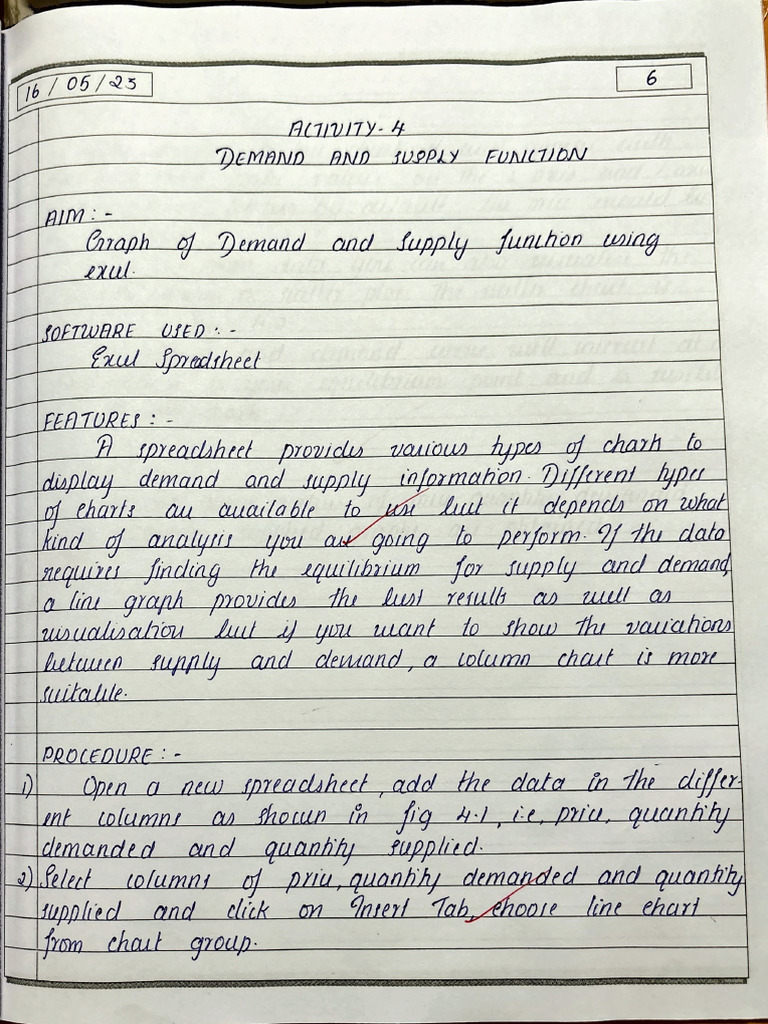 16 / 05 / 23
6
ACTIVITY - 4
DEMAND AND SUPPLY FUNCTION
AIM : -
Graph of Demand and Supply function using
excel.
SOFTWARE USED : -
Excel Spreadsheet
FEATURES : -
A spreadsheet provides various types of charts to
display demand and supply information. Different types
of charts are available to use but it depends on what
kind of analysis you are going to perform. If the data
requires finding the equilibrium for supply and demand,
a line graph provides the best results as well as
visualisation but if you want to show the variations
between supply and demand, a column chart is more
suitable.
PROCEDURE : -
1) Open a new spreadsheet, add the data in the differ-
ent columns as shown in fig 4.1, i.e, price, quantity
demanded and quantity supplied.
2) Select columns of price, quantity demanded and quantity
supplied and click on Insert Tab, choose line chart
from chart group.